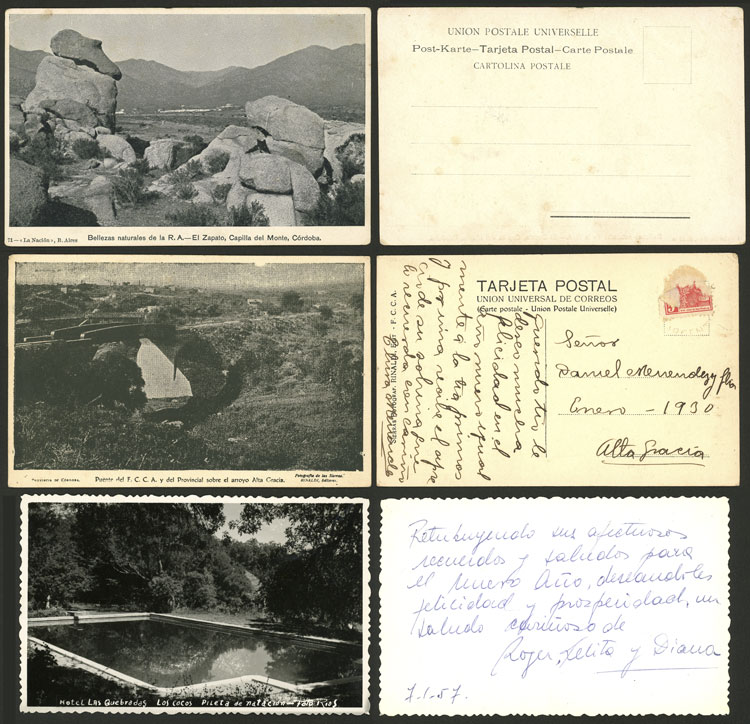 71—«La Nación», B. Aires
Bellezas naturales de la R. A.—El Zapato, Capilla del Monte, Córdoba.
UNION POSTALE UNIVERSELLE
Post-Karte—Tarjeta Postal—Carte Postale
CARTOLINA POSTALE
Puente del F. C. C. A. y del Provincial sobre el arroyo Alta Gracia.
Fotografía de las Sierras.
RINALDI, Editores.
TARJETA POSTAL
UNION UNIVERSAL DE CORREOS
(Carte postale - Union Postale Universelle)
Querido tio le
deseo mucha
felicidad en el
año nuevo igual
mente a la tia primos
Señor
Daniel Menendez y
Enero - 1930
Alta Gracia
Hotel Las Quebradas Los Cocos Pileta de natación - Foto Rios
Retribuyendo sus afectuosos
recuerdos y saludos para
el Nuevo Año, deseandoles
felicidad y prosperidad, un
saludo cariñoso de
Roger, Lelita y Diana
7.1.57.